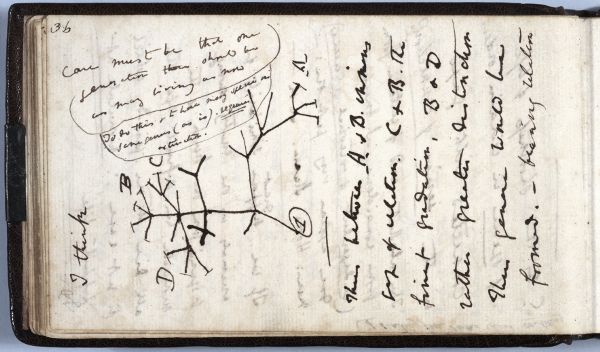 36
I think
Case must be that one
generation then should be
as many living as now
To do this & to have many species in
same genus (as is) requires
extinction.
A
B
C
D
1
Thus between A & B. immense
gap of relation. C & B. the
finest gradation, B & D
rather greater distinction
Thus genera would be
formed. — bearing relation